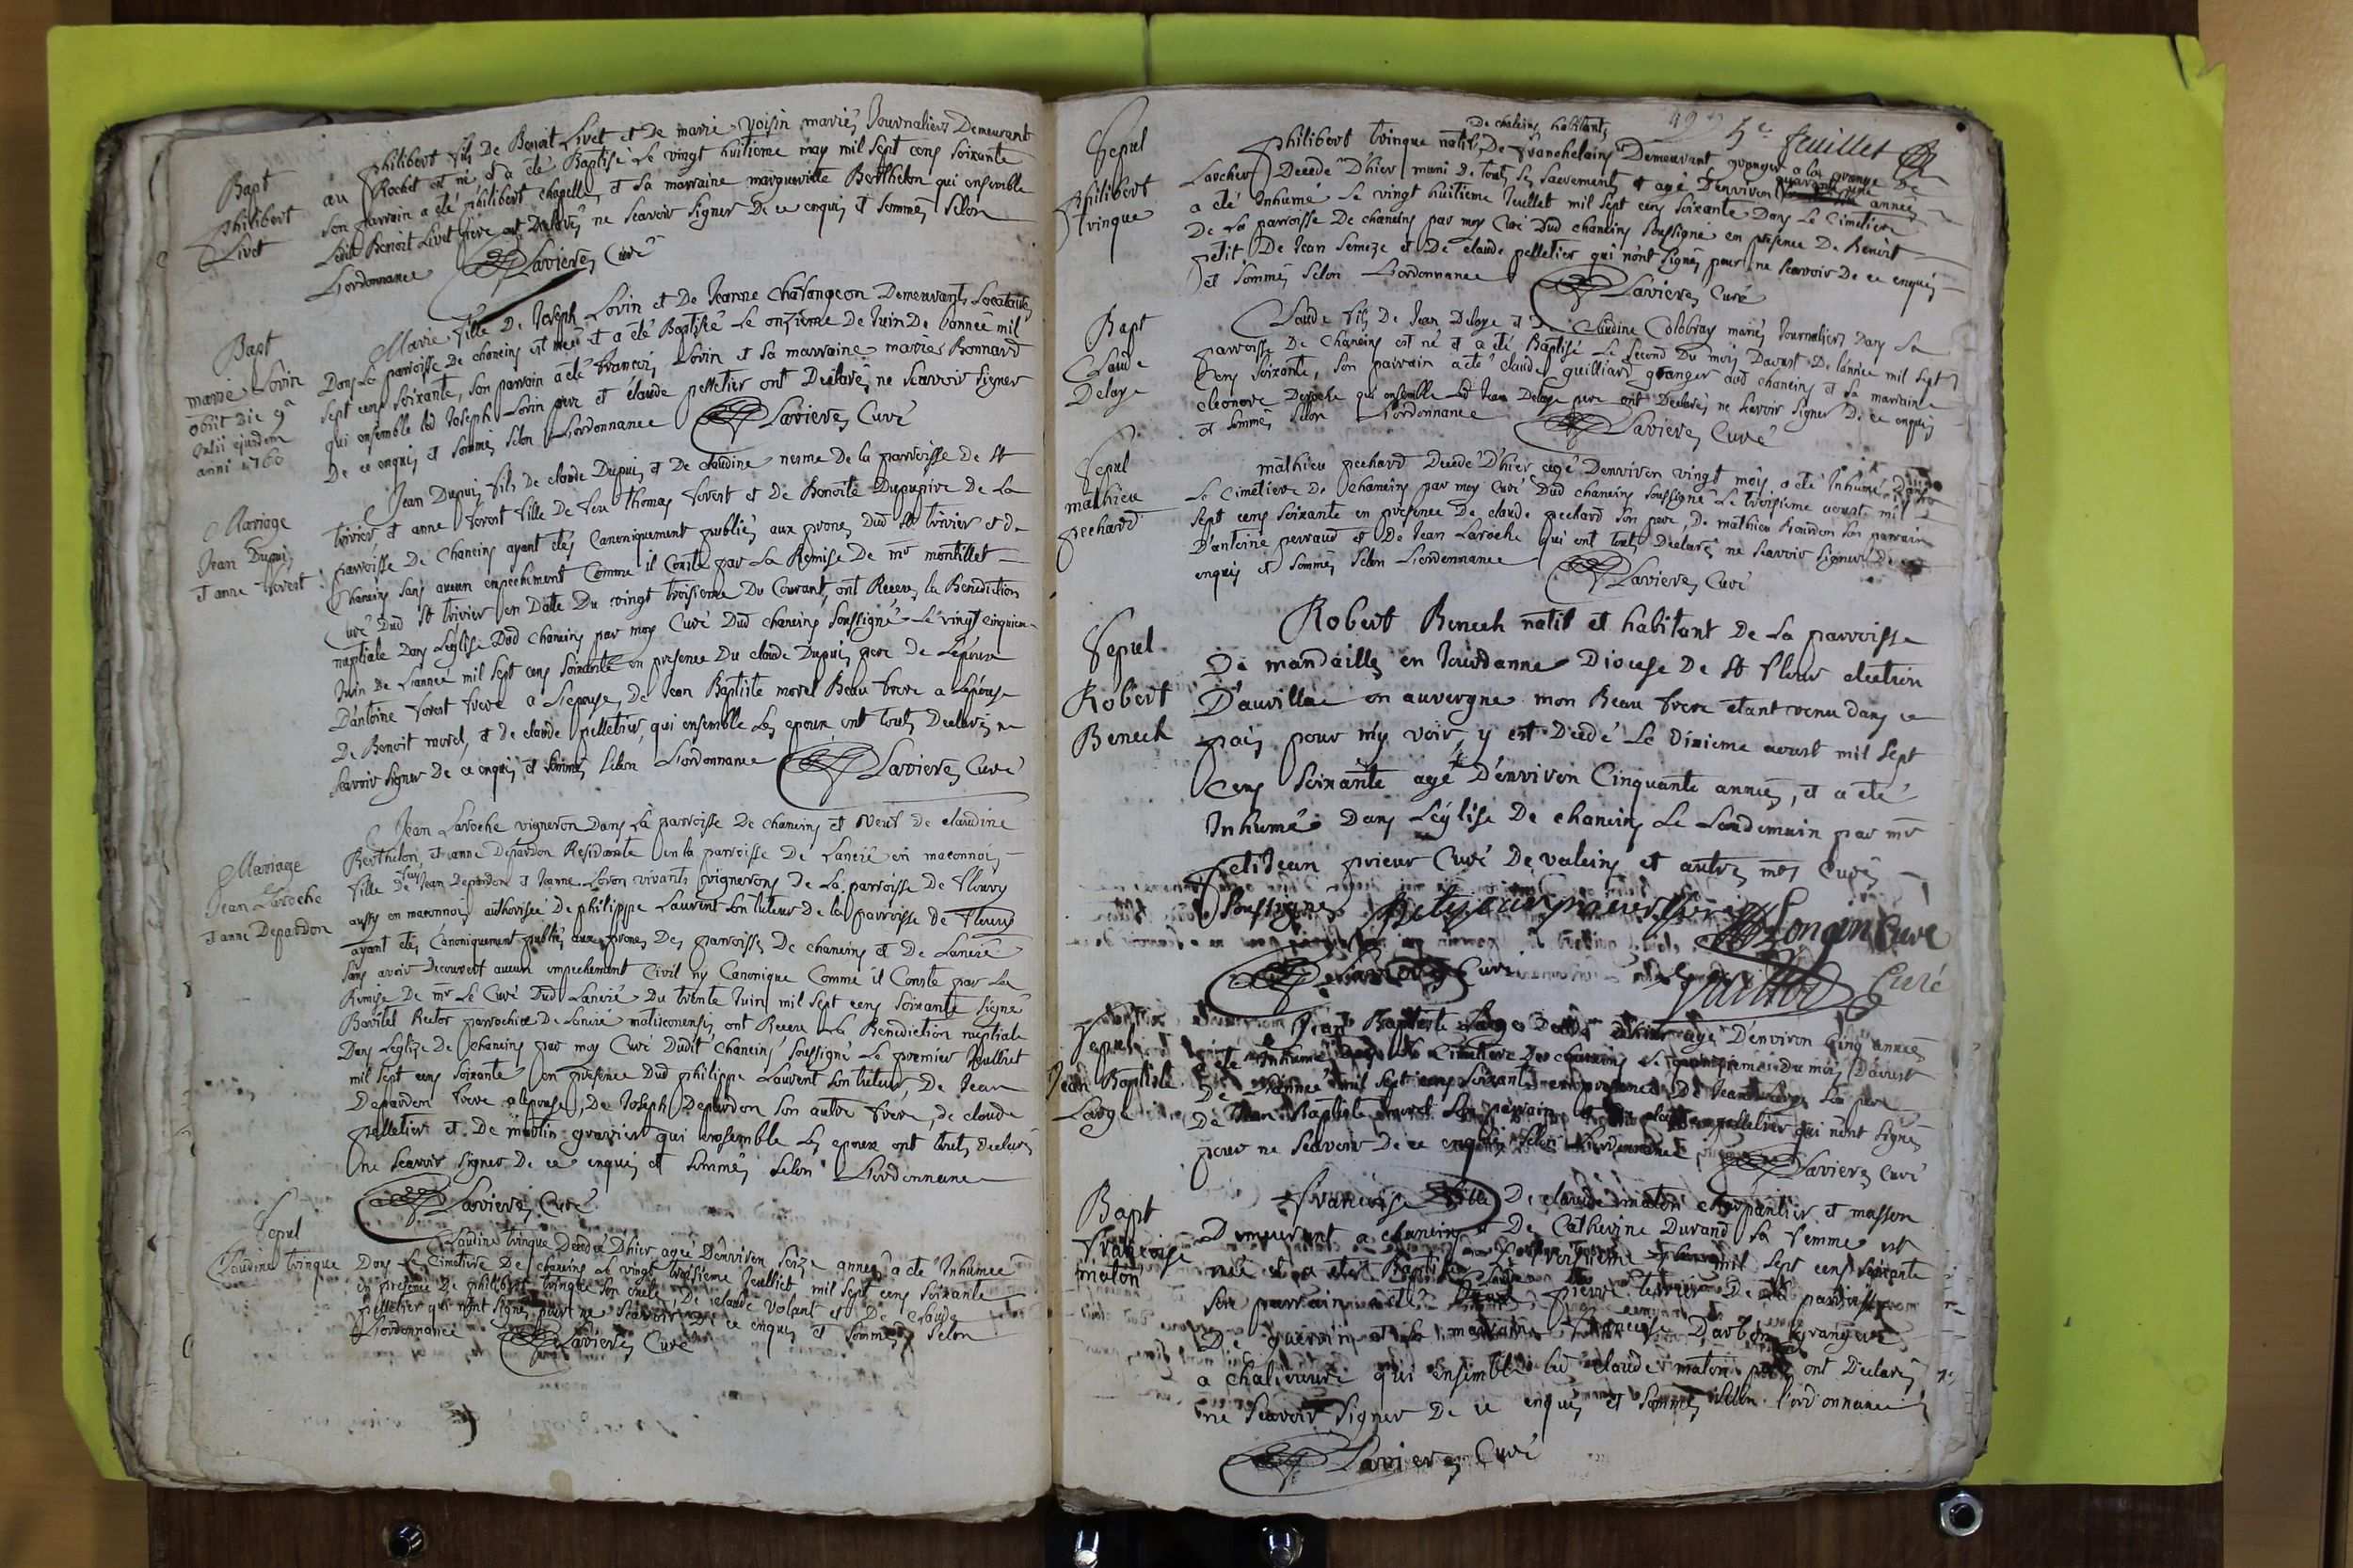 Bapt
philibert
Livet
philibert fils De Benoit Livet et De marie voisin mariés Journaliers Demeurant
au Rochet est né et a été Baptisé Le vingt huitieme may mil sept cens soixante
son parrain a été philibert chapelle et sa marraine margueritte Berthelon qui ensemble
Ledit Benoit Livet pere ont Declarés ne scavoir signer De ce enquis et sommés selon
L'ordonnance Lavieres Curé
Bapt
marie Lorin
obiit die 9a
Julii ejusdem
anni 1760
Marie fille De Joseph Lorin et De Jeanne chasangeon Demeurants Locataires
Dans La parroisse De chaneins est née et a été Baptisée Le onzieme De Juin De l'année mil
sept cens soixante, son parrain a été francois Lorin et sa marraine marie Bonnard
qui ensemble led Joseph Lorin pere et claude pelletier ont Declarés ne scavoir signer
De ce enquis et sommés selon L'ordonnance Lavieres Curé
Mariage
Jean Dupuis
et anne forest
Jean Dupuis fils de claude Dupuis et De claudine nesme De la parroisse De St
trivier et anne forest fille De feu thomas forest et de Benoite Dupupire De La
parroisse De Chaneins ayant étés Canoniquement publiés aux prones Dud St trivier et de
Chaneins sans aucun empechement Comme il Conste par La Remise De mr montillet
Curé Dud St trivier en Datte Du vingt troisieme Du Courant, ont Receus la Benediction
nuptiale Dans L'église Dud chaneins par moy Curé Dud chaneins soussigné Le vingt cinquieme
Juin De L'année mil sept cens soixante en presence Du claude Dupuis pere de L'époux
D'antoine forest frere a L'epouse, De Jean Baptiste morel Beau frere a L'épouse
De Benoit morel, et de claude pelletier, qui ensemble Les epoux ont touts Declarés ne
scavoir signer De ce enquis et sommés selon L'ordonnance Lavieres Curé
Mariage
Jean Laroche
et anne Depardon
Jean Laroche vigneron Dans La parroisse De chaneins et veuf de claudine
Berthelon, et anne Depardon Residante en la parroisse De Lancié en maconnois
fille De feu Jean Depardon et Jeanne Loron vivants vignerons De La parroisse De fleury
aussy en maconnois authorisée De philippe Laurent son tuteur De la parroisse De fleury
ayant étés Canoniquement publiés aux prones Des parroisses De chaneins et De Lancié
sans avoir Decouvert aucun empechement Civil ny Canonique Comme il Conste par La
Remise De mr Le Curé Dud Lancié Du trente Juin mil sept cens soixante signé
Baritel Rector parrochiae De Lancié matisconensis ont Receu La Benediction nuptiale
Dans L'eglise De chaneins par moy Curé Dudit chaneins soussigné Le premier Jeulliet
mil sept cens soixante en presence Dud philippe Laurent son tuteur, De Jean
Depardon frere a l'epouse, De Joseph Depardon son autre frere, de claude
pelletier et De martin gravier qui ensemble Les epoux ont touts Declarés
ne scavoir signer De ce enquis et sommés selon L'ordonnance
Lavieres Curé
Sepul
Claudine trinque
Claudine trinque Decedée D'hier agée D'environ seize années a été Inhumée
Dans Le Cimetiere De chaneins le vingt troisieme Jeulliet mil sept cens soixante
en presence De philibert trinque son oncle, De claude volant et De claude
pelletier qui n'ont signés pour ne scavoir De ce enquis et sommés selon
L'ordonnance Lavieres Curé
49 5e feuillet
Sepul
philibert
trinque
De chaleins habitants
philibert trinque natif De francheleins Demeurant granger a la grange De
Larcher Decedé D'hier muni De touts ses sacrements et agé D'environ quarante une années
a été Inhumé Le vingt huitieme Jeullet mil sept cens soixante Dans Le Cimetiere
De La parroisse De chaneins par moy Curé Dud chaneins soussigné en presence De Benoit
petit De Jean semeze et De claude pelletier qui n'ont signés pour ne scavoir De ce enquis
et sommés selon L'ordonnance Lavieres Curé
Bapt
Claude
Deloye
Claude fils De Jean Deloye et De Claudine Colobray mariés Journaliers Dans La
parroisse De Chaneins est né et a été Baptisé Le second Du mois D'aoust De l'année mil sept
Cens soixante, son parrain a été claude guilliard granger aud chaneins et sa marraine
eleonore Deroche qui ensemble Led Jean Deloye pere ont Declarés ne scavoir signer De ce enquis
et sommés selon L'ordonnance Lavieres Curé
Sepul
mathieu
pechard
mathieu pechard Decedé D'hier agé D'environ vingt mois a été Inhumé Dans
Le Cimetiere De Chaneins par moy Curé Dud chaneins soussigné Le troisieme aoust mil
sept cens soixante en presence De claude pechard son pere, De mathieu Bourdon son parrain
D'antoine perraud et De Jean Laroche qui ont touts Declarés ne scavoir signer De ce
enquis et sommés selon L'ordonnance Lavieres Curé
Sepul
Robert
Benech
Robert Benech natif et habitant De La parroisse
De mandailles en Jourdanne Diocese De St flour election
D'aurillac en auvergne mon Beau frere etant venu dans ce
pais pour m'y voir, y est Decedé Le Dixieme aoust mil sept
cens soixante agé D'environ Cinquante années, et a été
Inhumé Dans L'église De chaneins Le Lendemain par mr
petitJean prieur Curé De valeins et autres mrs Curés
soussignés petitjean prieur Longin Curé
Lavieres Curé Curé
Sepul
Jean Baptiste
Large
Jean Baptiste Large Decedé D'hier agé D'environ Cinq années
a été Inhumé Dans Le Cimetiere De chaneins Le du mois D'aoust
De L'année mil sept cens soixante en presence De Jean Large son pere
De Jean Baptiste morel son parrain et De claude pelletier qui n'ont signés
pour ne scavoir De ce enquis selon L'ordonnance Lavieres Curé
Bapt
francoise
maton
francoise fille De claude maton charpantier et masson
Demeurant a chaneins et De Catherine Durand sa femme est
née et a été Baptisée Le mil sept cens soixante
son parrain a été pierre De la parroisse
De guerreins et sa marraine francoise Darbon grangere
a chalivieure qui ensemble led claude maton pere ont Declarés
ne scavoir signer De ce enquis et sommés selon l'ordonnance
Lavieres Curé